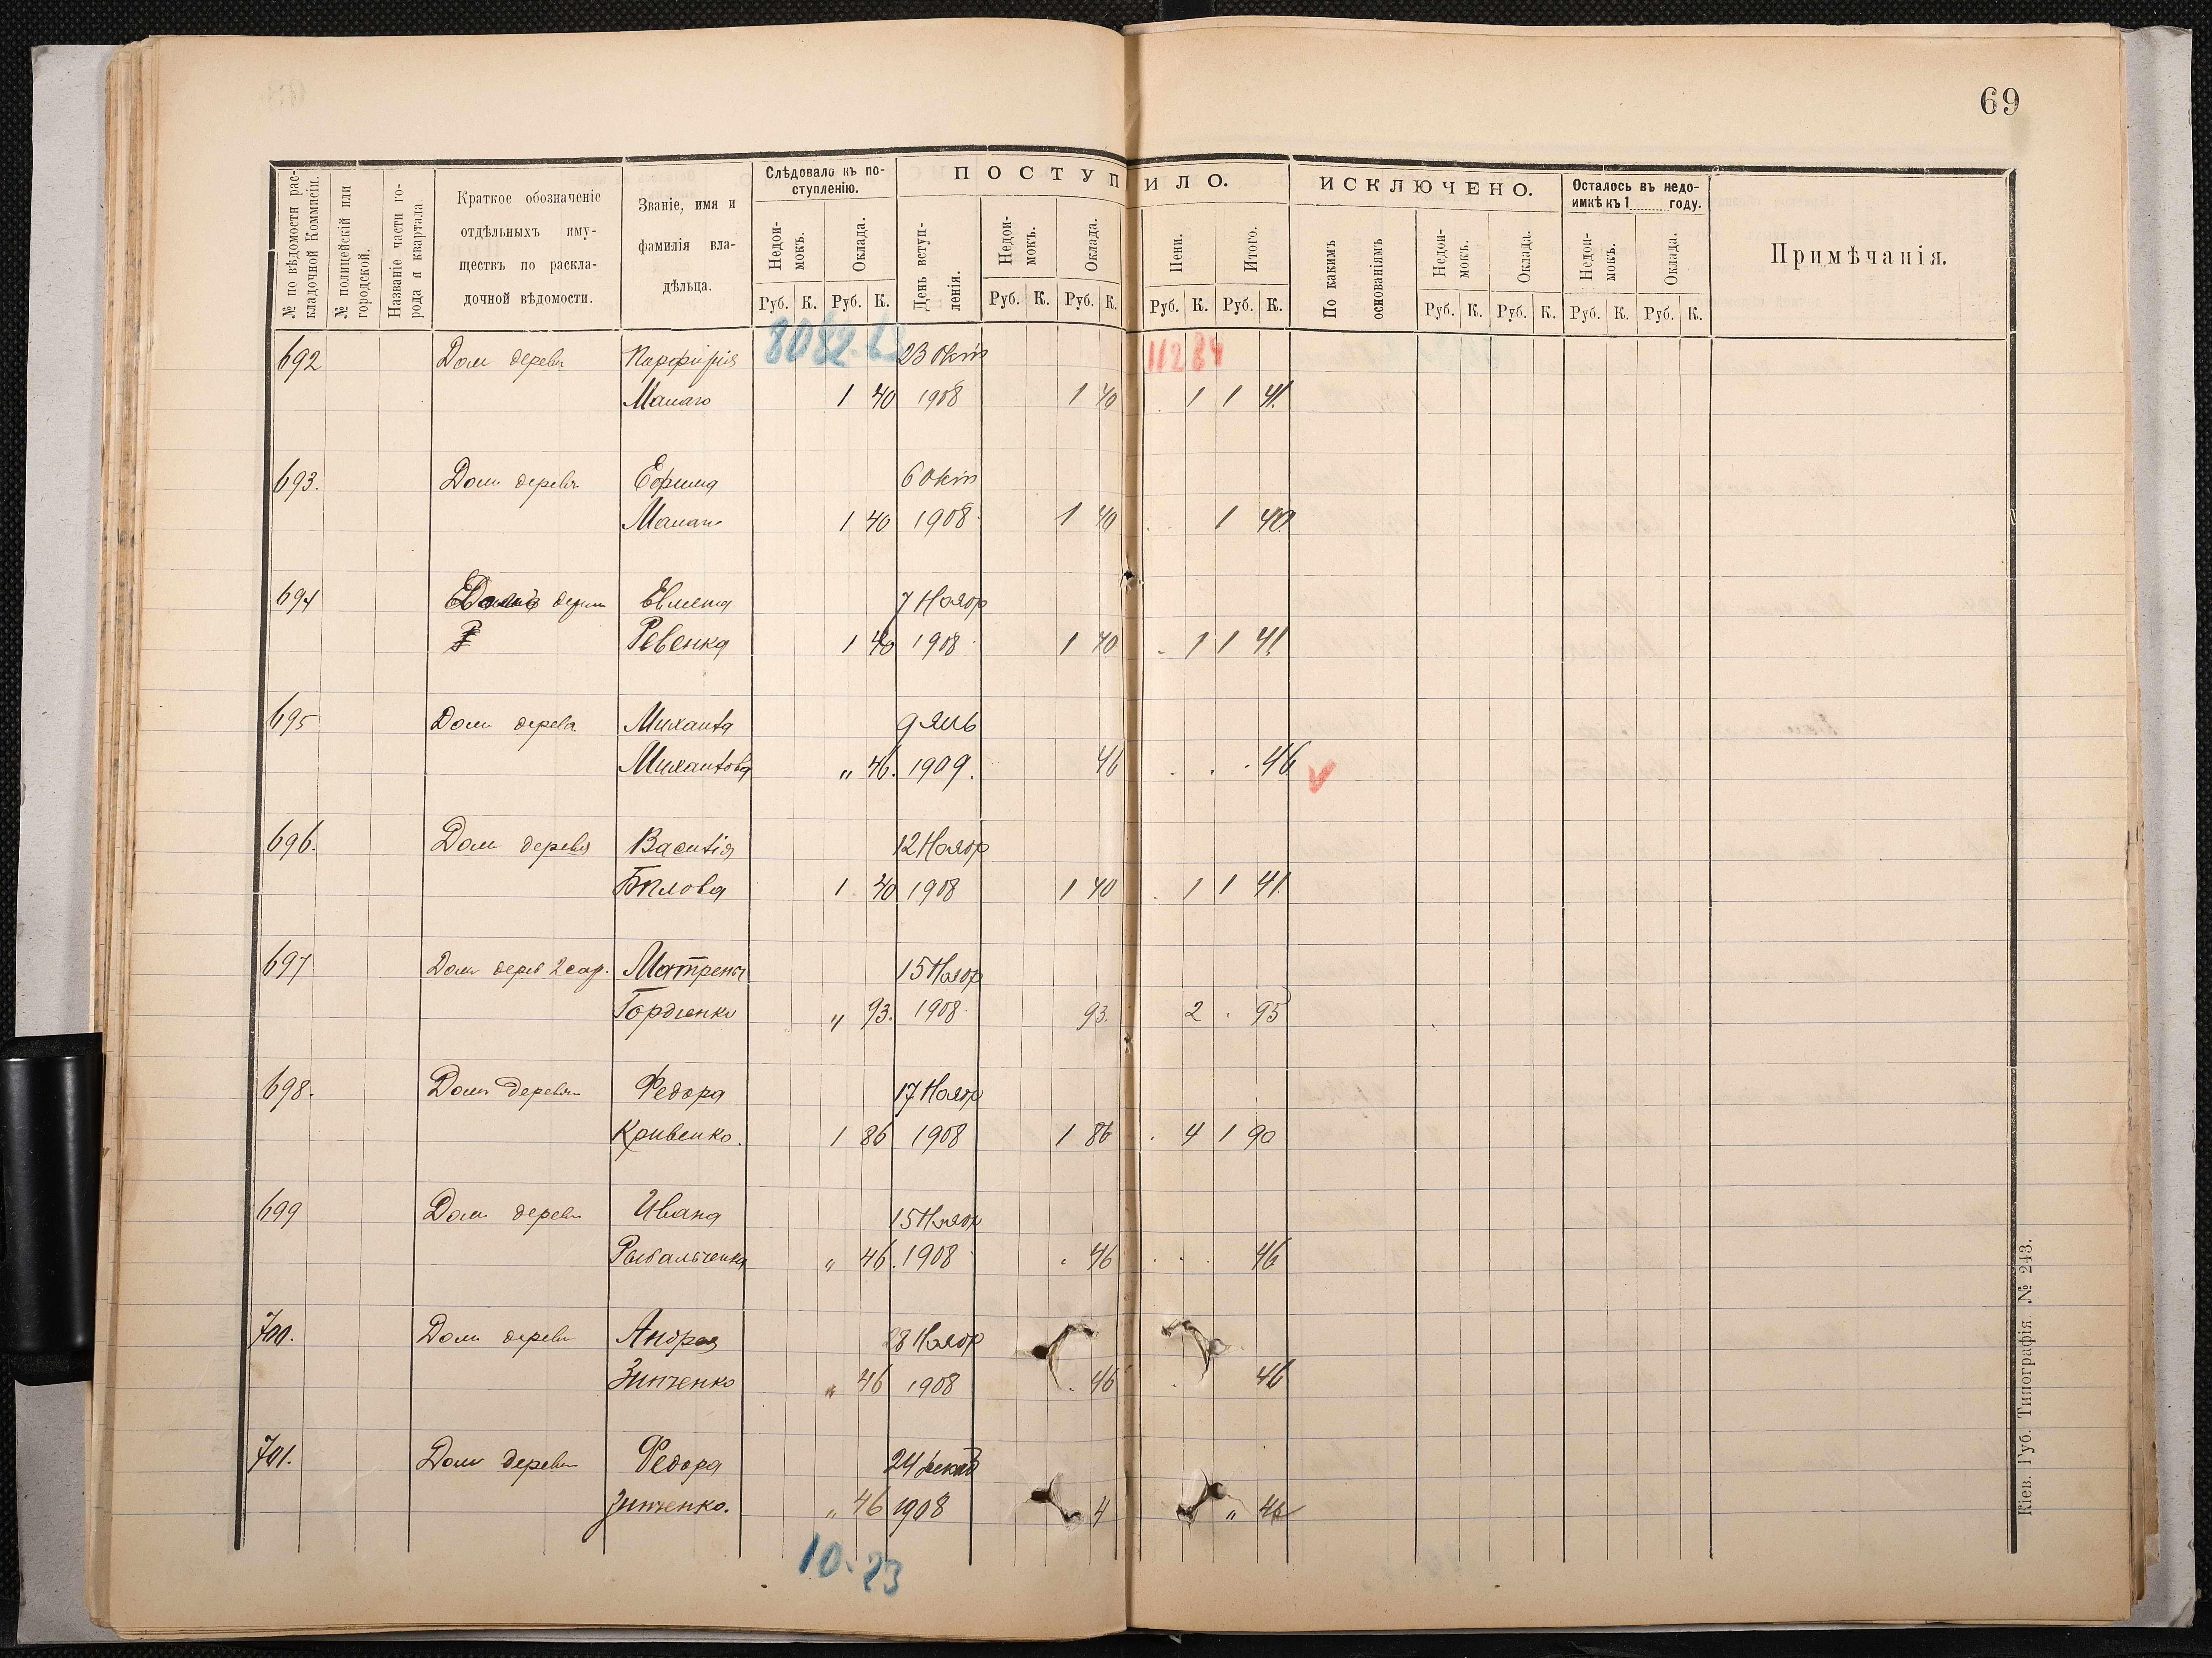 69
№ по вѣдомости раскладочной Коммисіи.
№ полицейскій или городской.
Названіе части города и квартала
Краткое обозначеніе отдѣльныхъ имуществъ по раскладочной вѣдомости.
Званіе, имя и фамилія владѣльца.
Слѣдовало къ поступленію.
Недоимокъ. Оклада.
Руб. К. Руб. К.
День вступленія.
ПОСТУПИЛО.
Недоимокъ. Оклада. Пени. Итого.
Руб. К. Руб. К. Руб. К. Руб. К.
ИСКЛЮЧЕНО.
По какимъ основаніямъ
Недоимокъ. Оклада.
Руб. К. Руб. К.
Осталось въ недоимкѣ къ 1 году.
Недоимокъ. Оклада.
Руб. К. Руб. К.
Примѣчанія.
692 Дом дерев Парфирія 8082. 23 Окт 11284
Манаго 1 40 1908 1 40 1 1 41.
693. Дом дерев Ефима 6 Окт
Манаго 1 40 1908 1 40 1 40
694 Евмена 7 Нояр
Ревенка 1 40 1908 1 40 1 1 41.
695 Дом дерев Михаила 9 Янв
Михаилова „ 46. 1909. 46 46 V
696. Дом дерев Василія 12 Нояр
Бѣлова 1 40 1908 1 40 1 1 41.
697 Дом дерев 2 сар. Матрены 15 Нояр
Гордіенко „ 93. 1908 93. 2 95
698. Дом дерев Федора 17 Нояр
Кривенко. 1 86 1908 1 86 4 1 90
699 Дом дерев Ивана 15 Нояр
Рыбальченка „ 46. 1908 46 46
700. Дом дерев Андрея 28 Нояр
Зинченко „ 46 1908 46 46
701. Дом дерев Федора 24 Декаб
Зинченко. „ 46 1908 4 „ 46
10. 23
Кіев. Губ. Типографія. № 243.